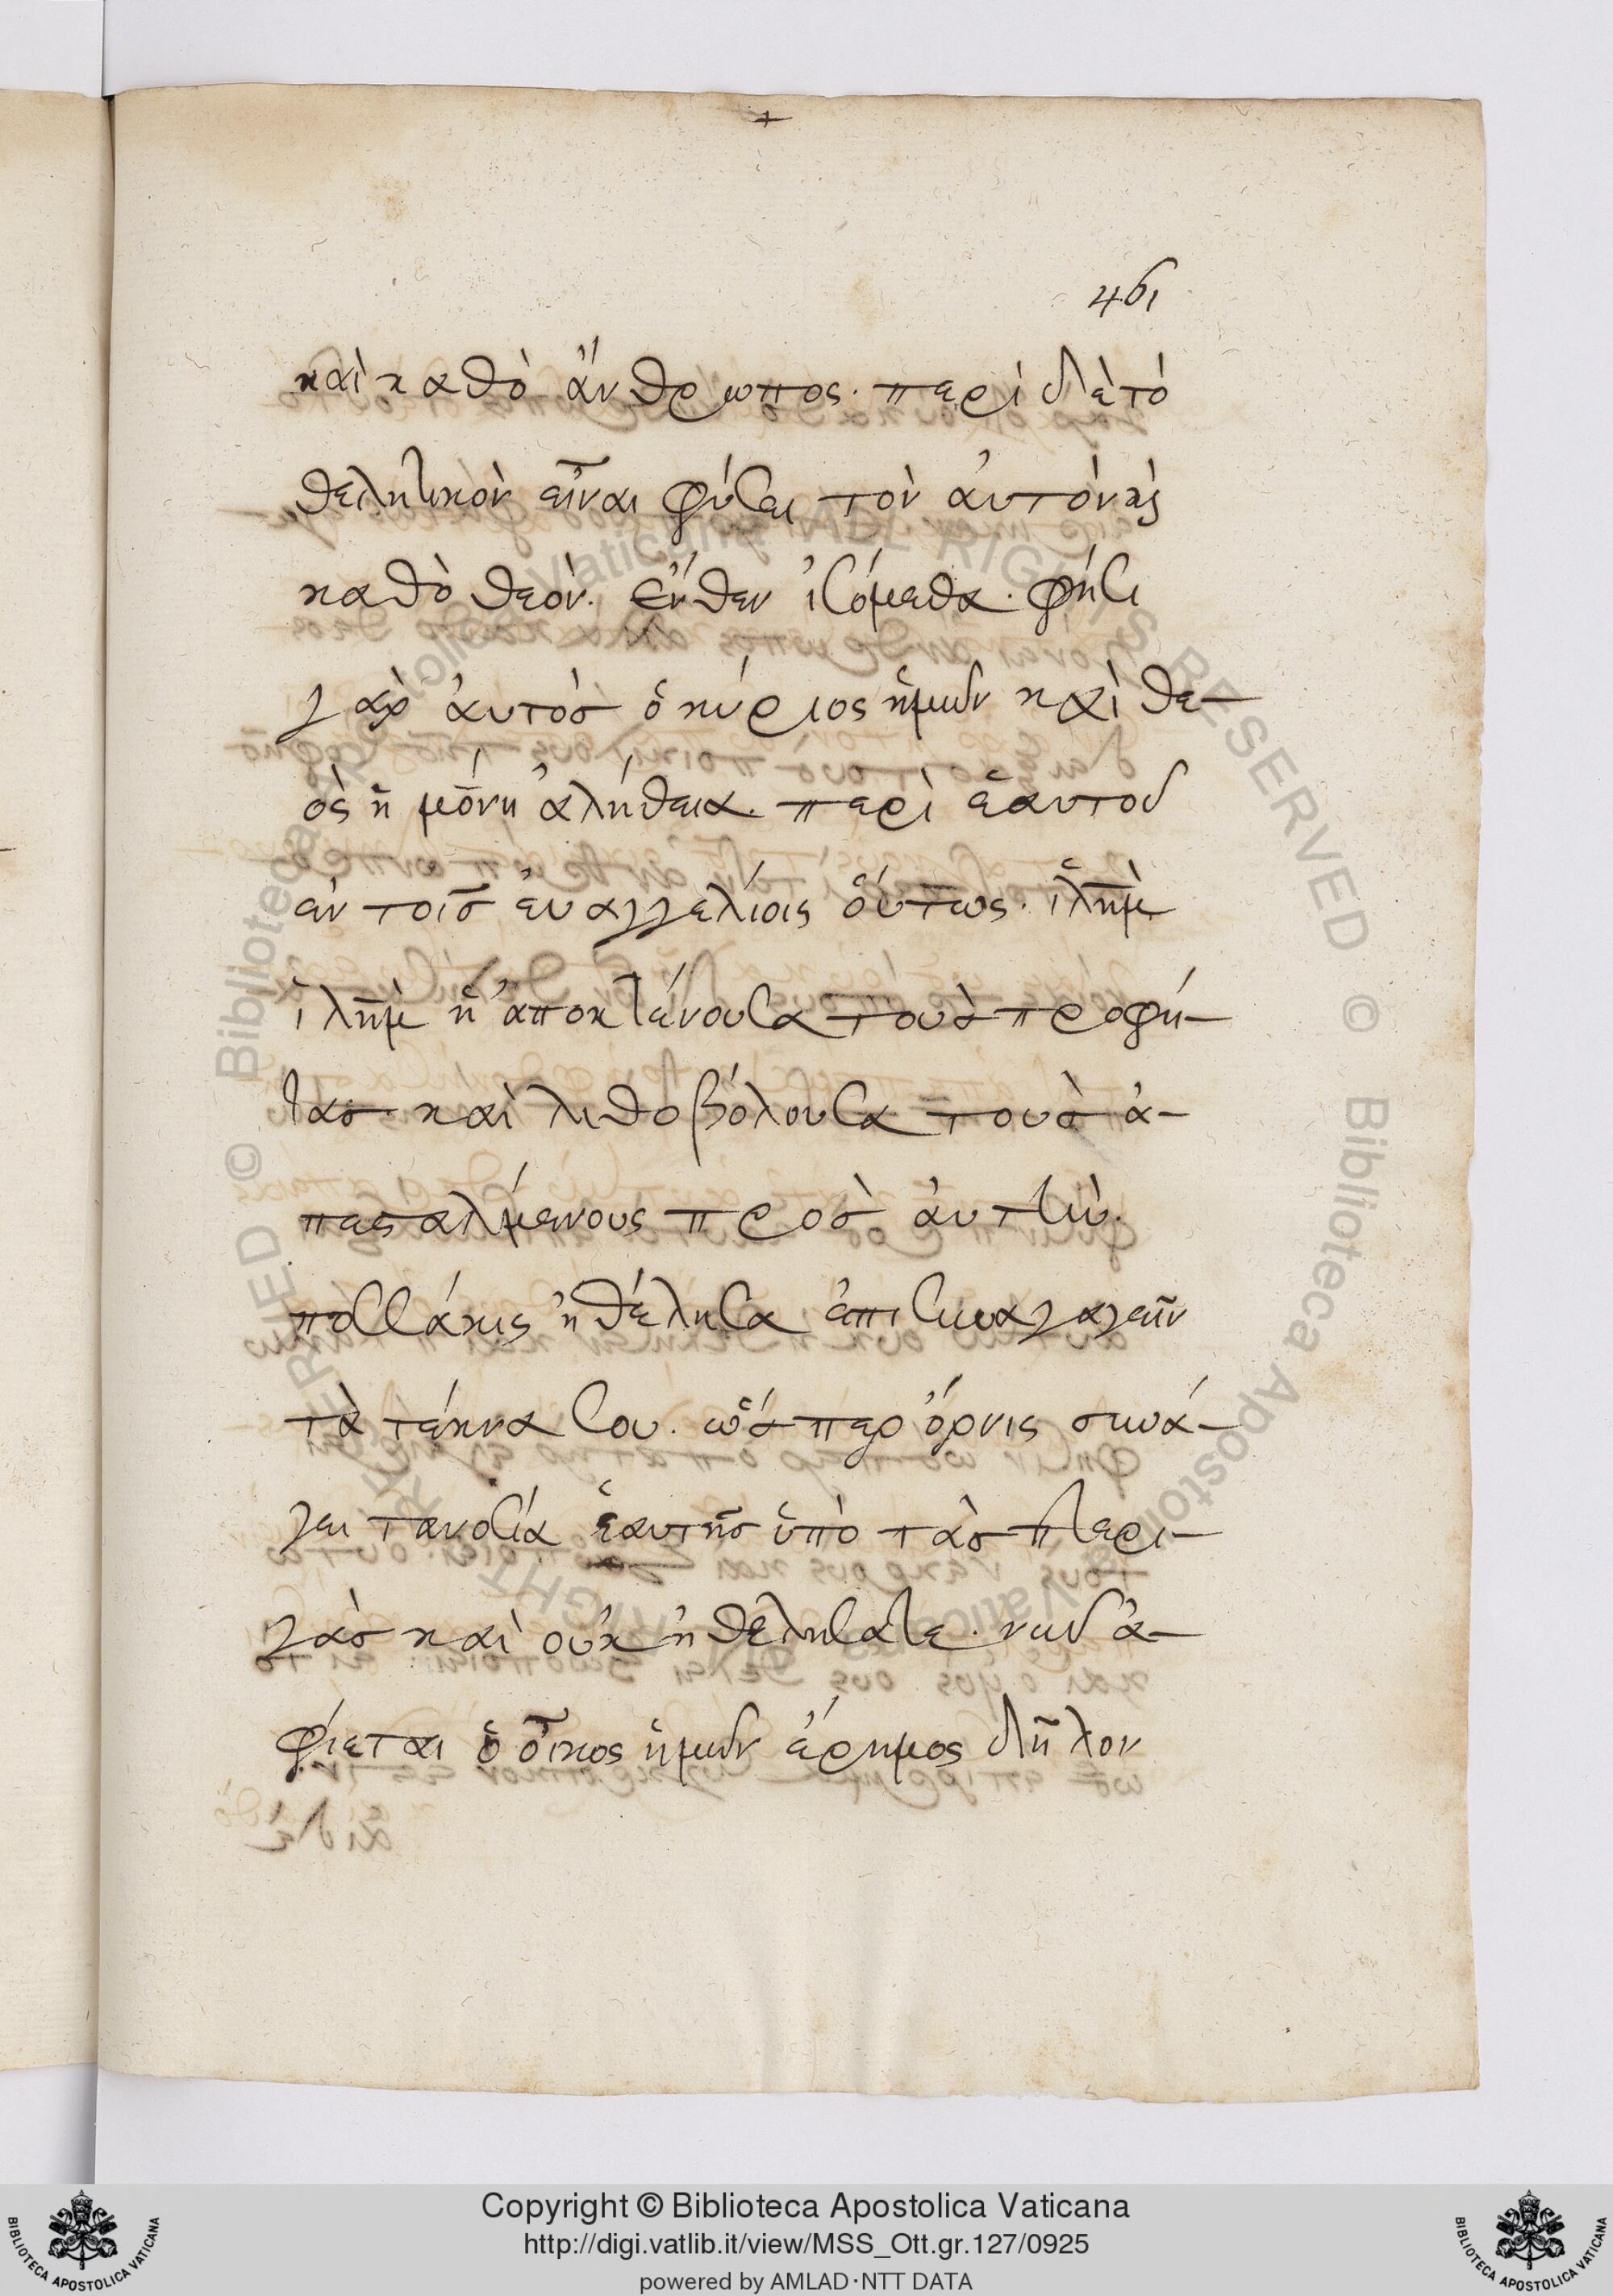 461
καὶ καθὸ ἄνθρωπος. περὶ δὲ τὸ
θελητικὸν εἶναι φύσει τὸν ἀυτὸν κὶ
καθὸ θεόν. ἔνθεν ἰσόμεθα. φήσι
γαρ ἀυτὸσ ὁ κύριος ἡμῶν καὶ θε-
ὸς ἡ μόνη ἀλήθεια. περὶ ἑαυτοῦ
ἐν τοῖσ ἐυαγγελίοις ὅυτως. ἱλη̅μ
ἱλη̅μ ἡ ἀποκτένουσα τοὺσ προφή-
τασ καὶ λιθοβόλουσα τουσ ἀ-
πεσταλμένους πρὸσ ἀυτὴν.
ποσσάκις ἠθέλησα ἐπισυναγαγεῖν
τὰ τέκνα σου. ὥσπερ ὄρνις συνά-
γει τανοσία ἑαυτῆσ ὑπὸ τὰσ πτερι-
γάσ καὶ οὐκ ἠθελήσατε. νυν ἀ-
φίεται ὁ οἶκος ἡμῶν ἔρημος δῆλον
Copyright © Biblioteca Apostolica Vaticana
http://digi.vatlib.it/view/MSS_Ott.gr.127/0925
powered by AMLAD·NTT DATA
BIBLIOTECA APOSTOLICA VATICANA
BIBLIOTECA APOSTOLICA VATICANA